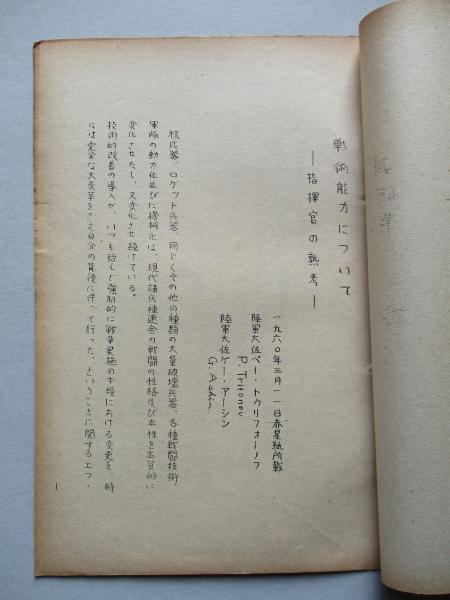 戦術能力について
―指揮官の熟考―
一九六〇年三月一一日赤星紙所載
陸軍大佐ペー・トゥリフォーノフ
P. Trifonov
陸軍大佐ゲー・アーシン
G. Ashin
核兵器、ロケット兵器、同じくその他の種類の大量破壊兵器、各種戦闘技術、
軍隊の動力化並びに機械化は、現代諸兵種連合の戦闘の性格及び本性を本質的に
変化させたし、又変化させ続けている。
技術的改善の導入が、いつも殆んど強制的に戦争実施の手段における変更を、時
には完全な大変革をさえ自分の背後に伴って行った、ということに関するエフ・
1